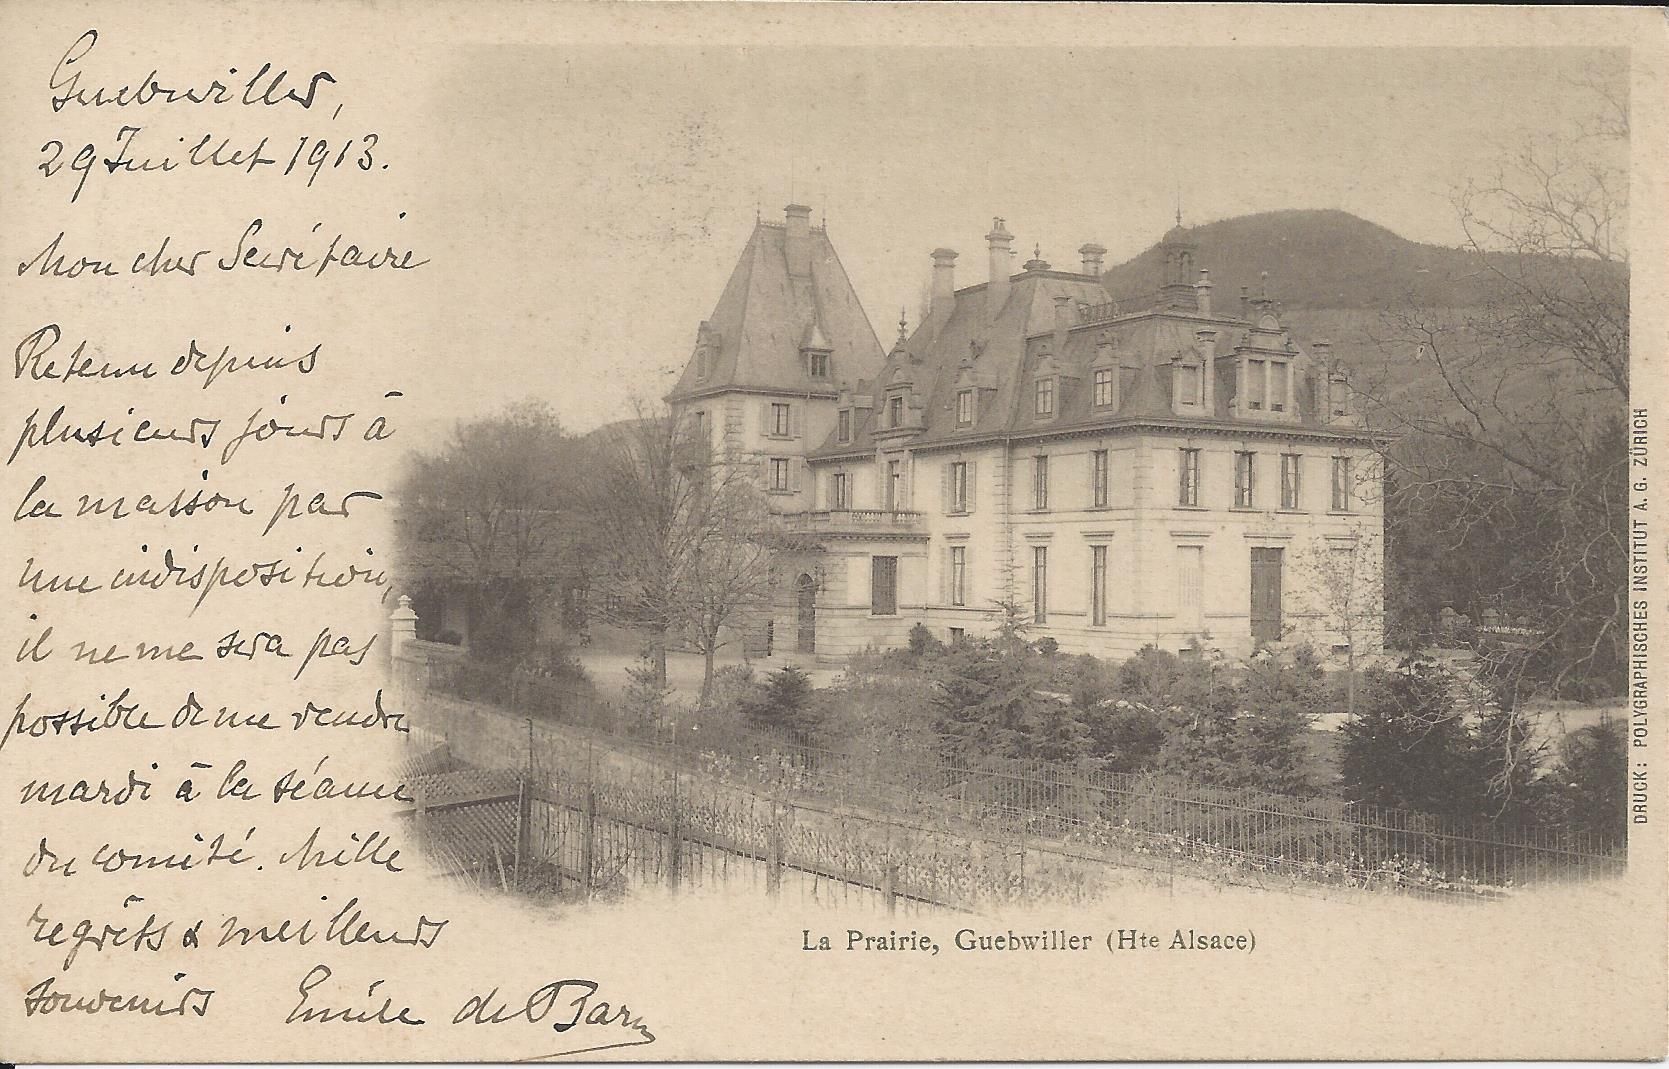 Guebwiller,
29 Juillet 1913.
Mon cher Secrétaire
Retenu depuis
plusieurs jours à
la maison par
une indisposition,
il ne me sera pas
possible de me rendre
mardi à la séance
du comité. Mille
regrêts & meilleurs
souvenirs Emile de Bary
La Prairie, Guebwiller (Hte Alsace)
DRUCK: POLYGRAPHISCHES INSTITUT A. G. ZÜRICH